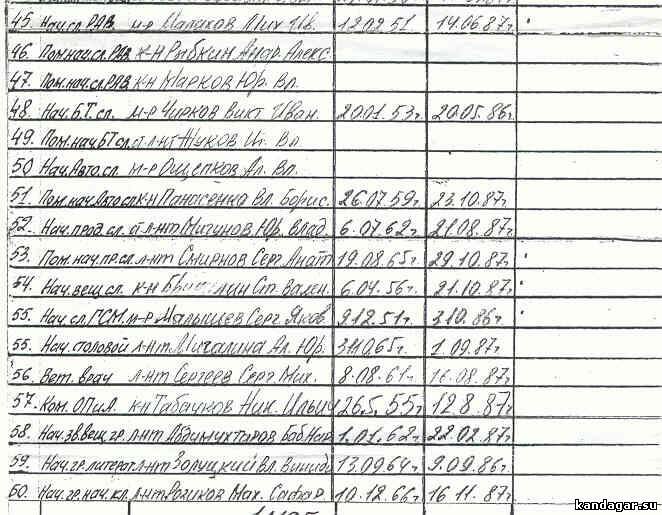 45. Нач.сл.РАВ м-р Малахов Мих. Ив. 12.02.51 14.06.87г
46. Пом.нач.сл.РАВ к-н Рыбкин Андр. Алекс.
47. Пом.нач.сл.РАВ к-н Марков Юр. Вл.
48. Нач.Б.Т.сл. м-р Чирков Викт. Иван. 20.01.53г. 20.05.86г.
49. Пом.нач.БТ сл. ст.л-нт Жуков Иг. Вл
50 Нач.Авто.сл. м-р Ощепков Ал. Вл.
51. Пом.нач.Авто сл к-н Панасенко Вл. Борис. 26.07.59г. 23.10.87г.
52. Нач.прод.сл. ст.л-нт Мигунов Юр. Влад. 6.07.62г 21.08.87г.
53. Пом.нач.пр.сл. л-нт Смирнов Серг. Анат 19.08.65г. 29.10.87г.
54. Нач.вещ.сл. к-н Ст. Вален. 6.04.56г. 21.10.87г.
55. Нач.сл.ГСМ. м-р Малышев Серг. Яков. 9.12.51г. 3.10.86г
55. Нач.столовой л-нт Мигалина Ал. Юр. 31.10.65г. 1.09.87г.
56. Вет. врач л-нт Сергеев Серг. Мих. 8.08.61г. 16.08.87г
57. Ком. ОПиА. к-н Табачков Ник. Ильич 26.5.55г 12.8.87г.
58. Нач.зв.вещ.гр. л-нт 1.01.62г 22.02.87г
59. Нач.гр.литерат. л-нт Золуцкий Вл. 13.09.64г 9.09.86г.
60. Нач.гр.нач.кл. л-нт Мах. Сафар. 10.12.66г 16.11.87г.
kandagar.su